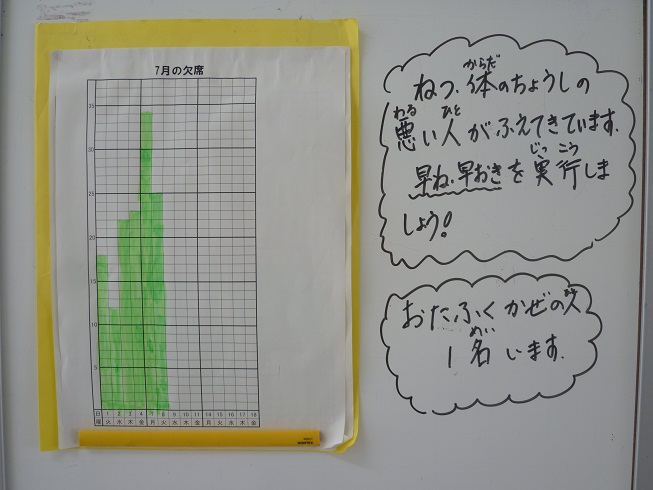 7月の欠席
35
30
25
20
15
10
5
日 1 2 3 4 7 8 9 10 11 14 15 16 17 18
曜 火 水 木 金 月 火 水 木 金 月 火 水 木 金
からだ
ねつ、体のちょうしの
わる ひと
悪い人がふえてきています.
じっこう
早ね、早おきを実行しま
しょう!
おたふくかぜの人
めい
1名います.